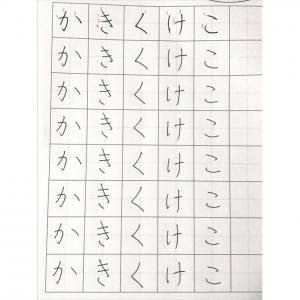 かきくけこ
かきくけこ
かきくけこ
かきくけこ
かきくけこ
かきくけこ
かきくけこ
かきくけこ